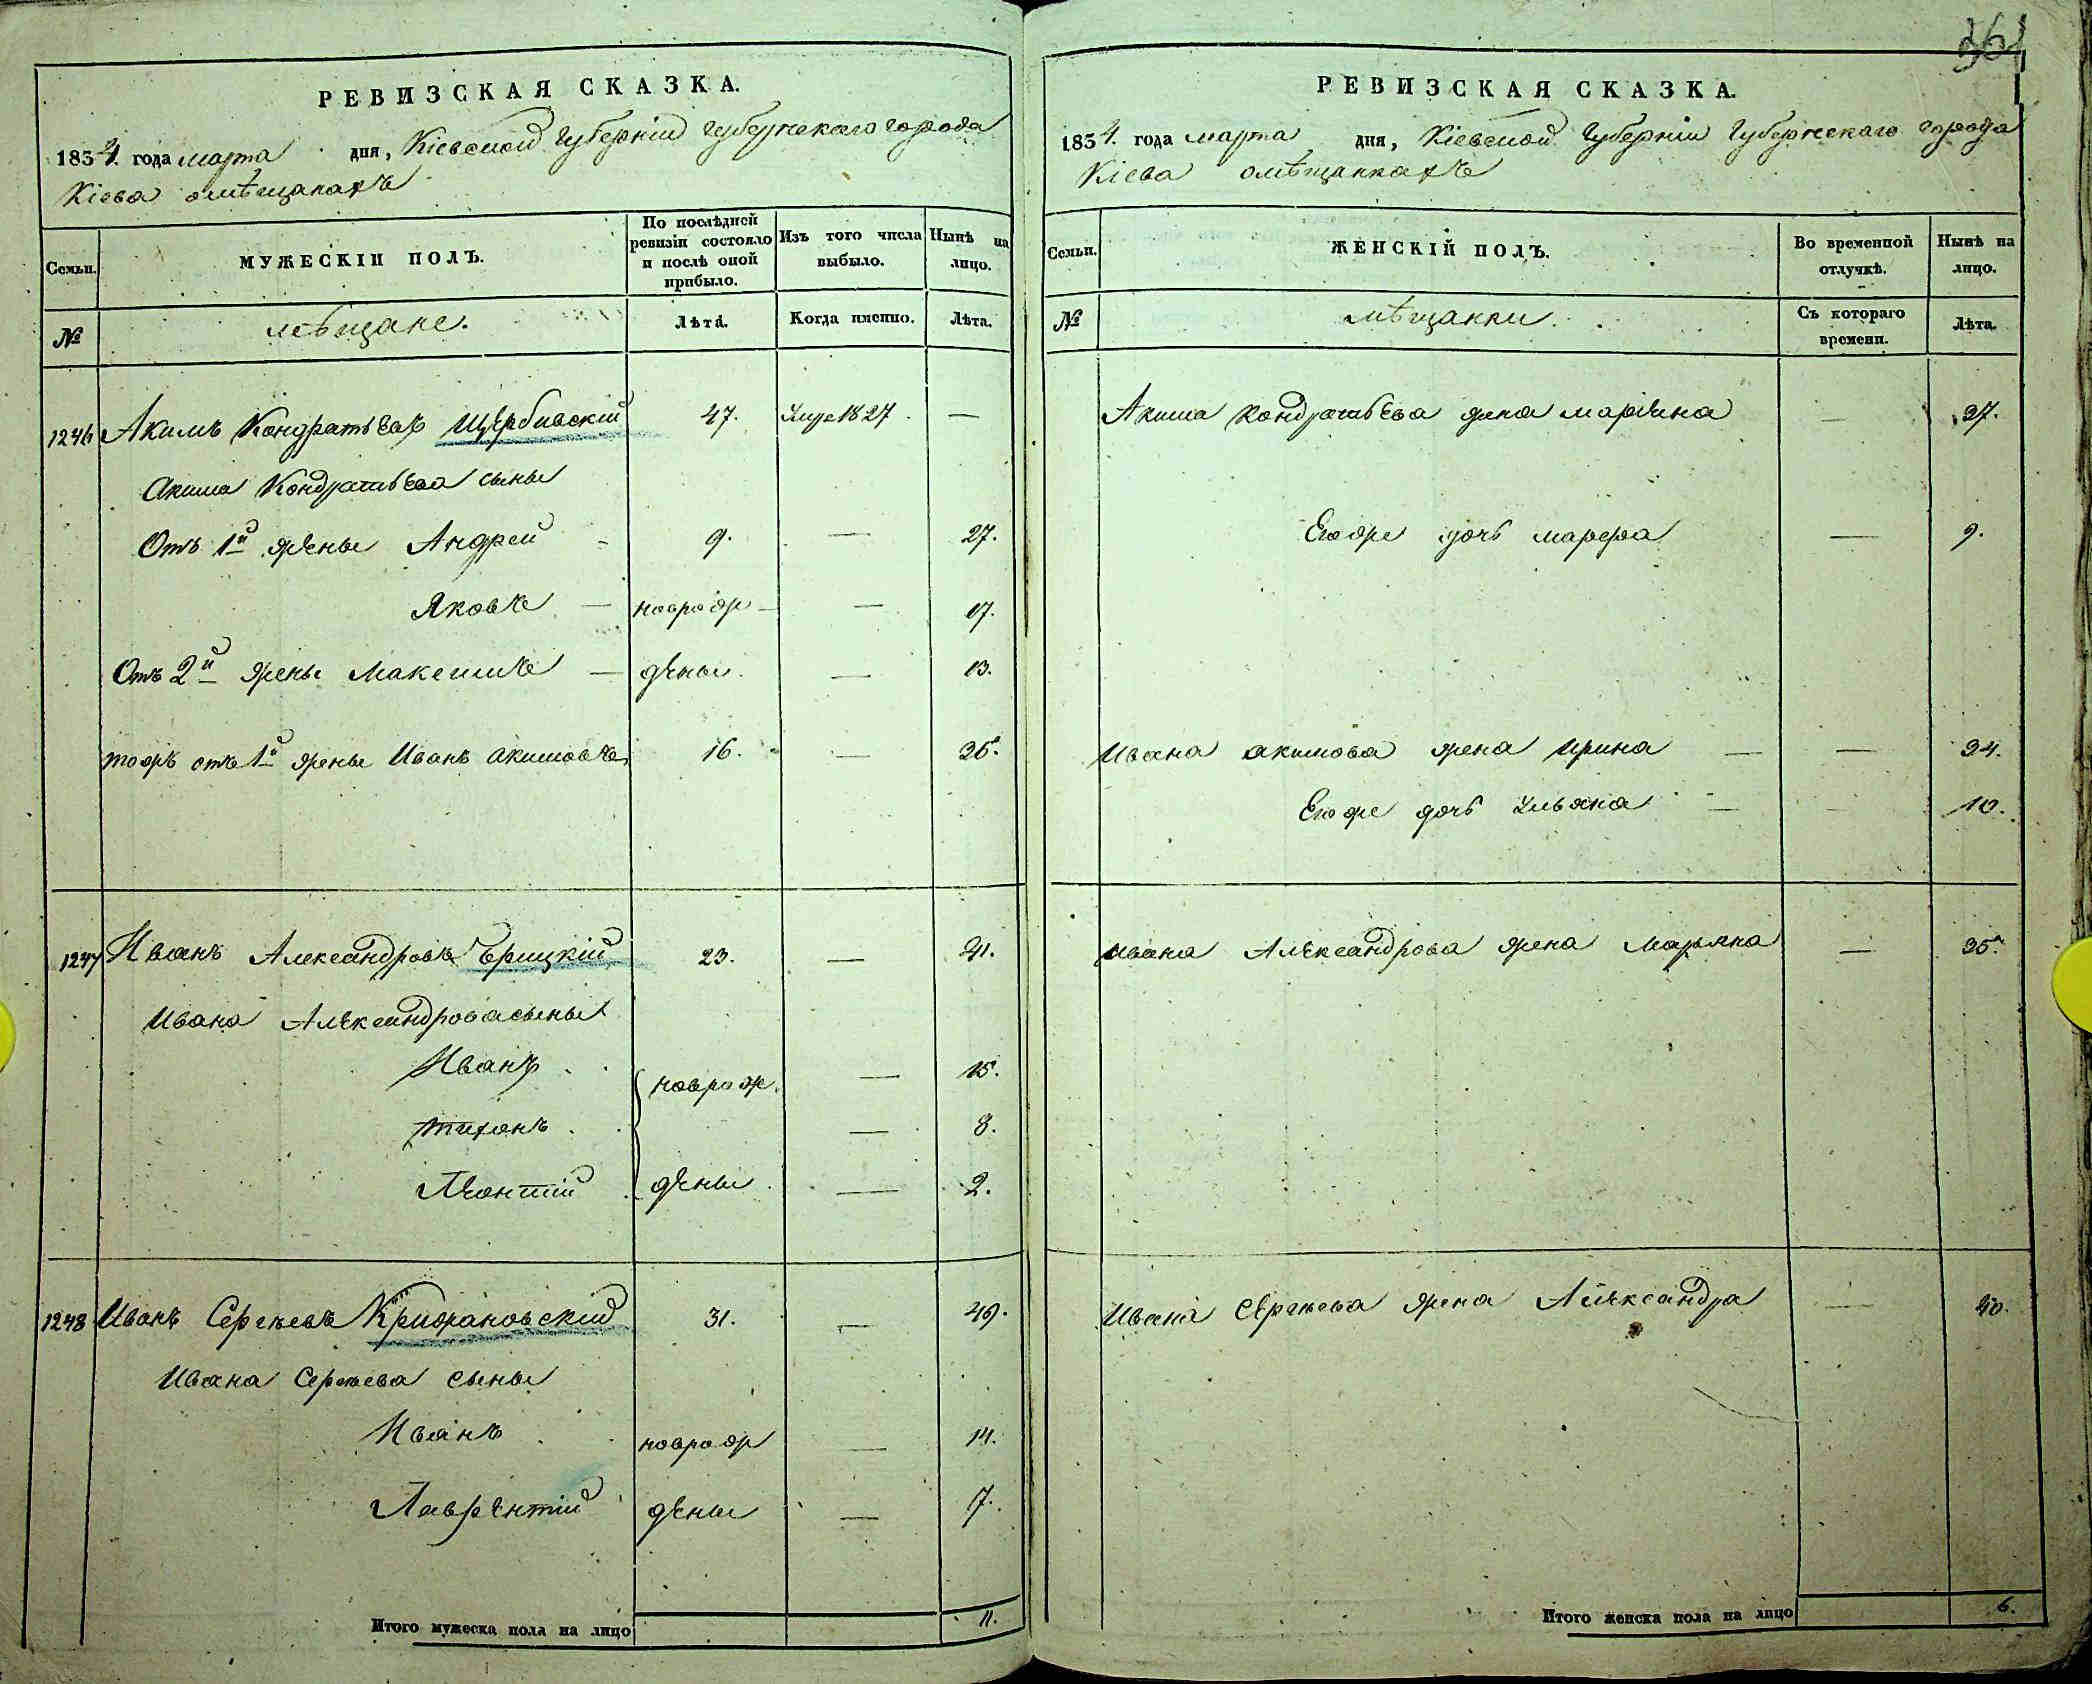 361
РЕВИЗСКАЯ СКАЗКА.
1834 года марта дня, Кіевской Губерніи Губернскаго города
Кіева о мѣщанахъ
Семьи. МУЖЕСКІИ ПОЛЪ. По послѣдней ревизіи состояло и послѣ оной прибыло. Изъ того числа выбыло. Нынѣ на лицо.
№ мѣщане. Лѣта. Когда именно. Лѣта.
1246 Акимъ Кондратьевъ Щербивскій 47. Умре 1827 —
Акима Кондратьева сыны
Отъ 1й жены Андрей 9. — 27.
Яковъ — новрож — — 17.
Отъ 2й жены Максимъ — дены — 13.
тожъ отъ 1й жены Иванъ Акимовъ 16. — 35.
1247 Иванъ Александровъ 23. — 41.
Ивана Александрова сыны
Иванъ новрож — 15.
Тихонъ — 8.
Леонтій дены — 2.
1248 Иванъ Сергѣевъ Крижановскій 31. — 49.
Ивана Сергѣева сыны
Иванъ новрож — 14.
Лаврентій дены — 7.
Итого мужеска пола на лицо 11.
РЕВИЗСКАЯ СКАЗКА.
1834. года марта дня, Кіевской Губерніи Губернскаго города
Кіева о мѣщанкахъ
Семьи. ЖЕНСКІЙ ПОЛЪ. Во временной отлучкѣ. Нынѣ на лицо.
№ мѣщанки. Съ котораго времени. Лѣта.
Акима Кондратьева жена Маріяна — 37.
Егоже дочь Марфа — 9.
Ивана Акимова жена Ирина — — 34.
Егоже дочь Ульяна — — 10.
Ивана Александрова жена Марьяна — 35.
Ивана Сергѣева жена Александра — 40.
Итого женска пола на лицо 6.